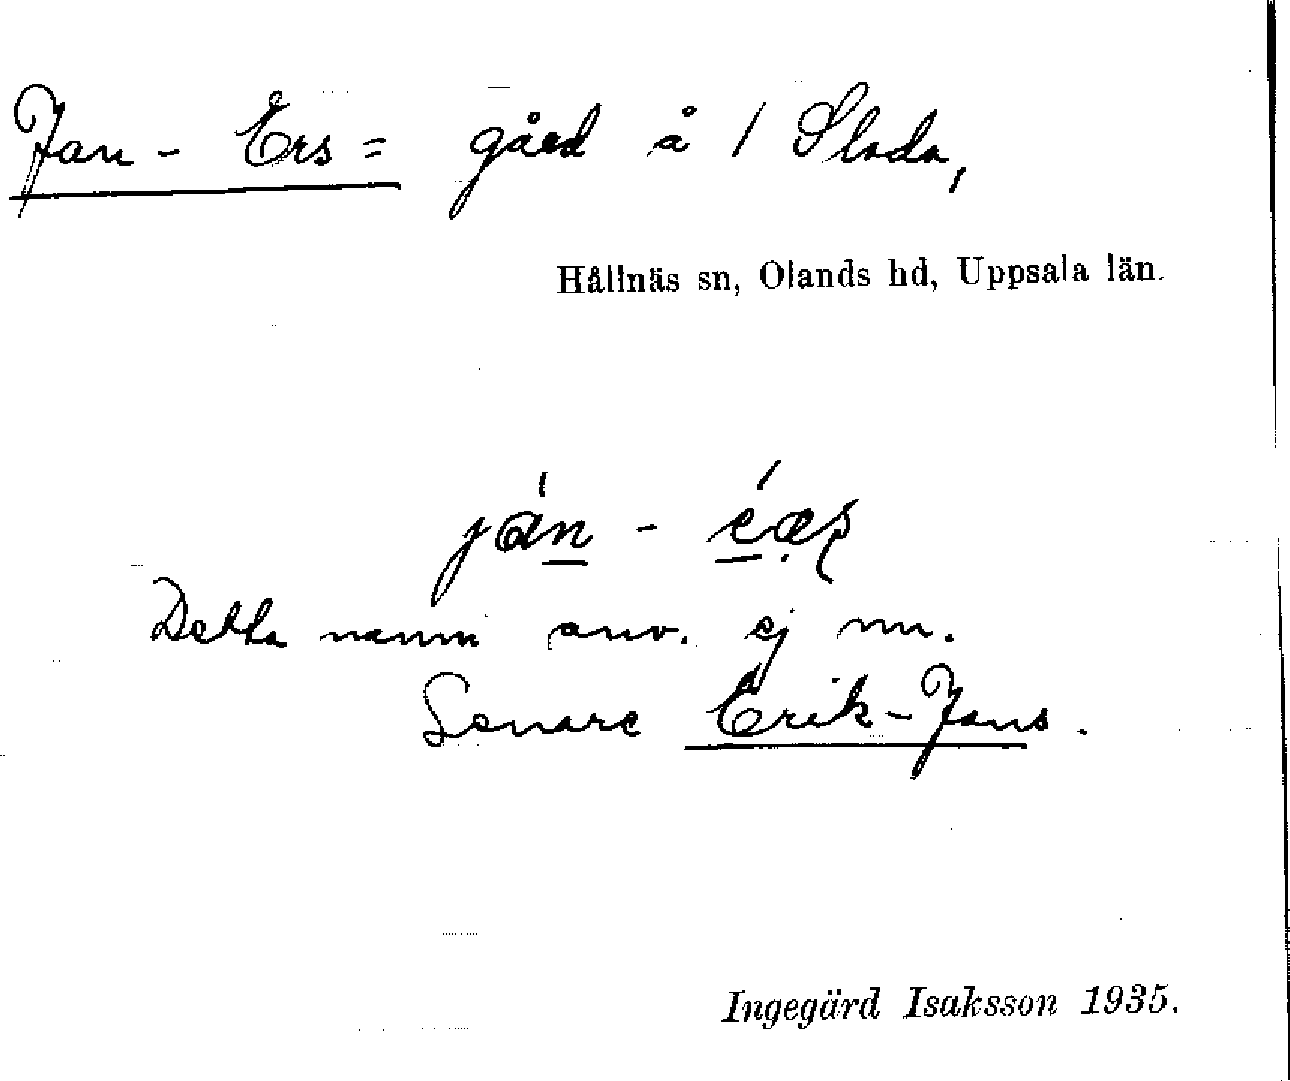 Jan-Ers= gård å 1 Slada,
Hållnäs sn, Olands hd, Uppsala län.
Detta namn anv. ej nu.
Senare Erik-Jans.
Ingegärd Isaksson 1935.